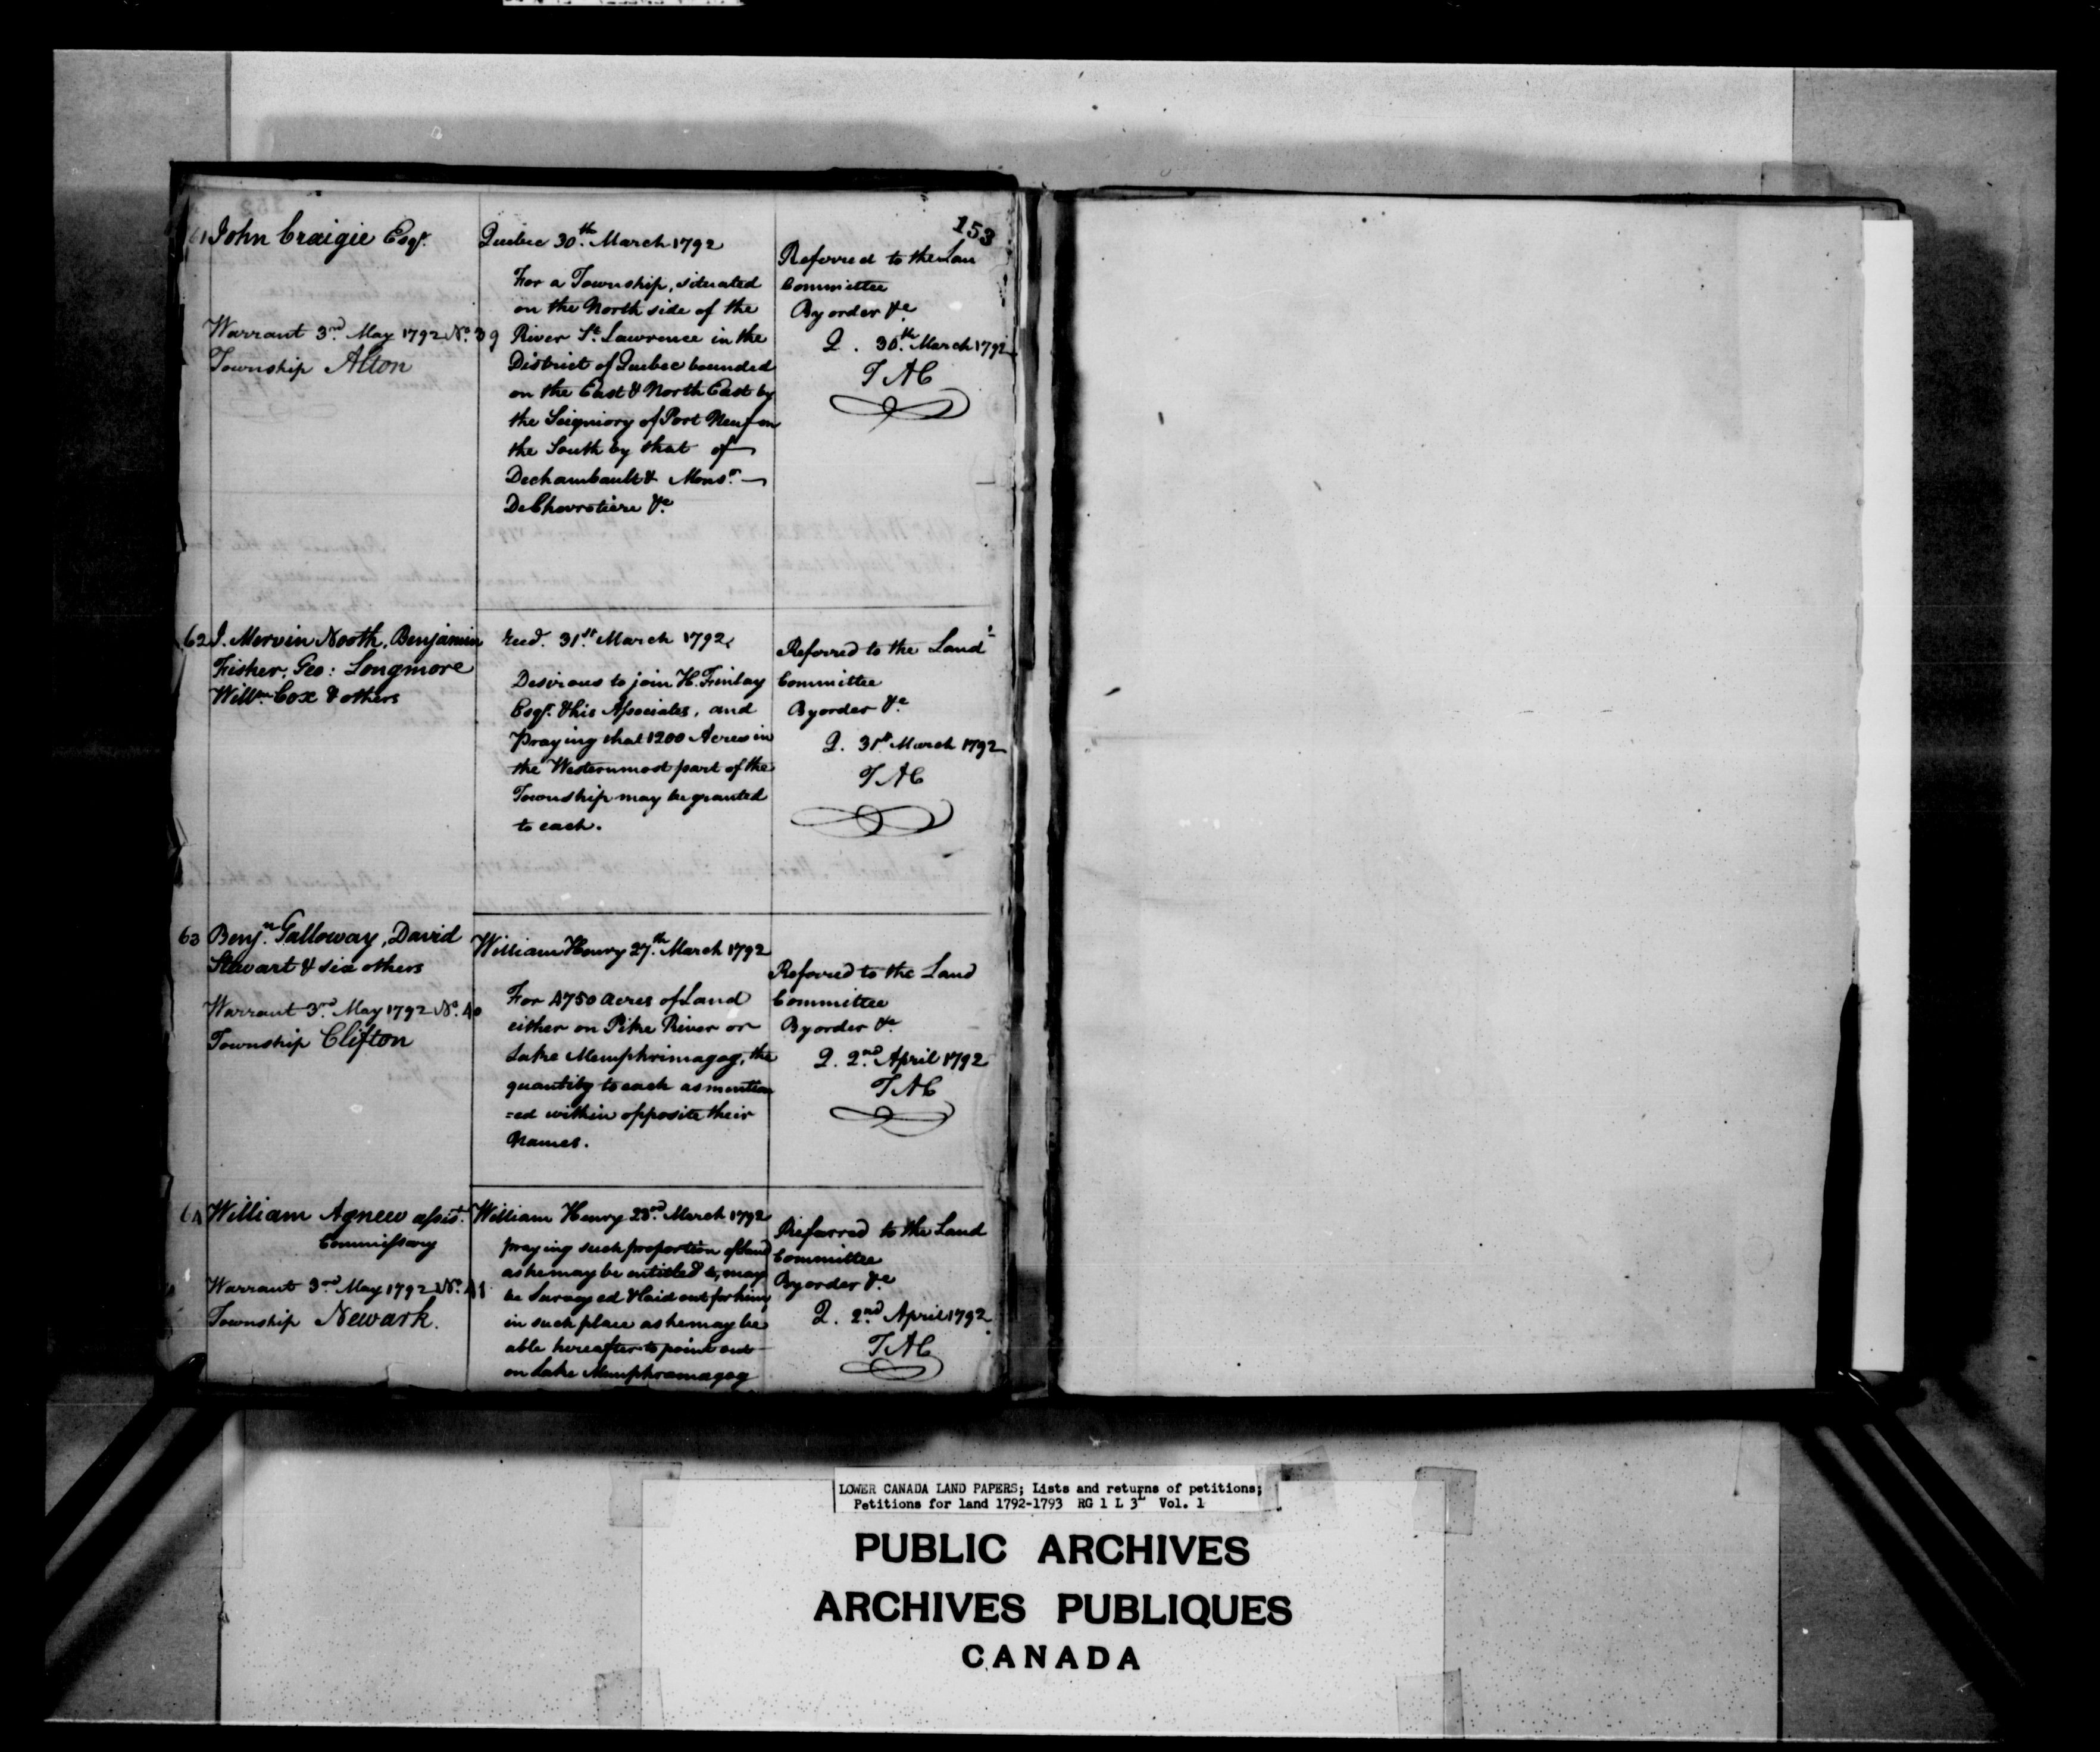 153
61 John Craigie Esqr.
Warrant 3rd May 1792 No. 39
Township Alton
Quebec 30th. March 1792
For a Township, situated
on the North side of the
River St. Lawrence in the
District of Quebec bounded
on the East & North East by
the Seigniory of Port Neuf on
the South by that of
Dechambault & Monsr.
De Chavrotiere &c
Referred to the Lan
Committee
By order &c
Q. 30th. March 1792
TAC
62 J. Mervin Nooth, Benjamin
Fisher, Geo: Longmore
Willm. Cox & others
Recd. 31st March 1792
Desirous to join H. Finlay
Esqr. & his Associates, and
Praying that 1200 Acres in
the Westernmost part of the
Township may be granted
to each.
Referred to the Land
Committee
By order &c
Q. 31st March 1792
TAC
63 Benjn. Galloway, David
Stewart & six others
Warrant 3rd. May 1792 No. 40
Township Clifton
William Henry 27th. March 1792
For 4750 Acres of Land
either on Pike River or
Lake Memphrimagog, the
quantity to each as mention
=ed within opposite their
Names.
Referred to the Land
Committee
By order &c
Q. 2nd. April 1792
TAC
64 William Agnew assist.
Commissary
Warrant 3rd May 1792 No. 41
Township Newark.
William Henry 23rd. March 1792
praying such proportion of Land
as he may be entitled to, may
be Surveyed & laid out for him,
in such place as he may be
able hereafter to point out
on Lake Memphramagog
Referred to the Land
Committee
By order &c
Q. 2nd. April 1792
TAC
LOWER CANADA LAND PAPERS; Lists and returns of petitions;
Petitions for land 1792-1793 RG 1 L 3L Vol. 1
PUBLIC ARCHIVES
ARCHIVES PUBLIQUES
CANADA